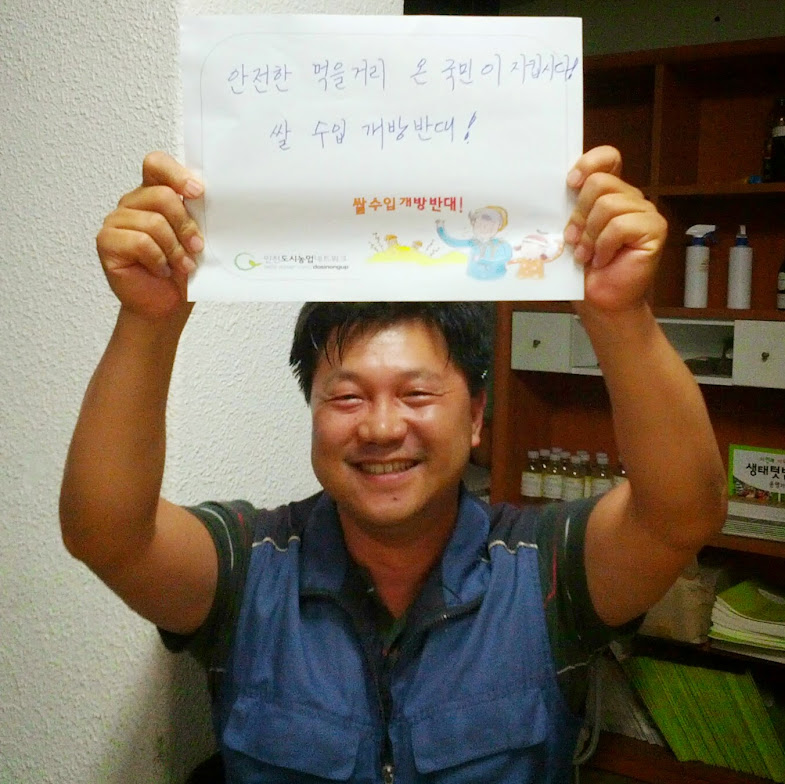 안전한 먹을거리 온 국민이 지킵시다!
쌀 수입 개방반대!
쌀수입개방반대!
인천도시농업네트워크
dosinongup
생태텃밭